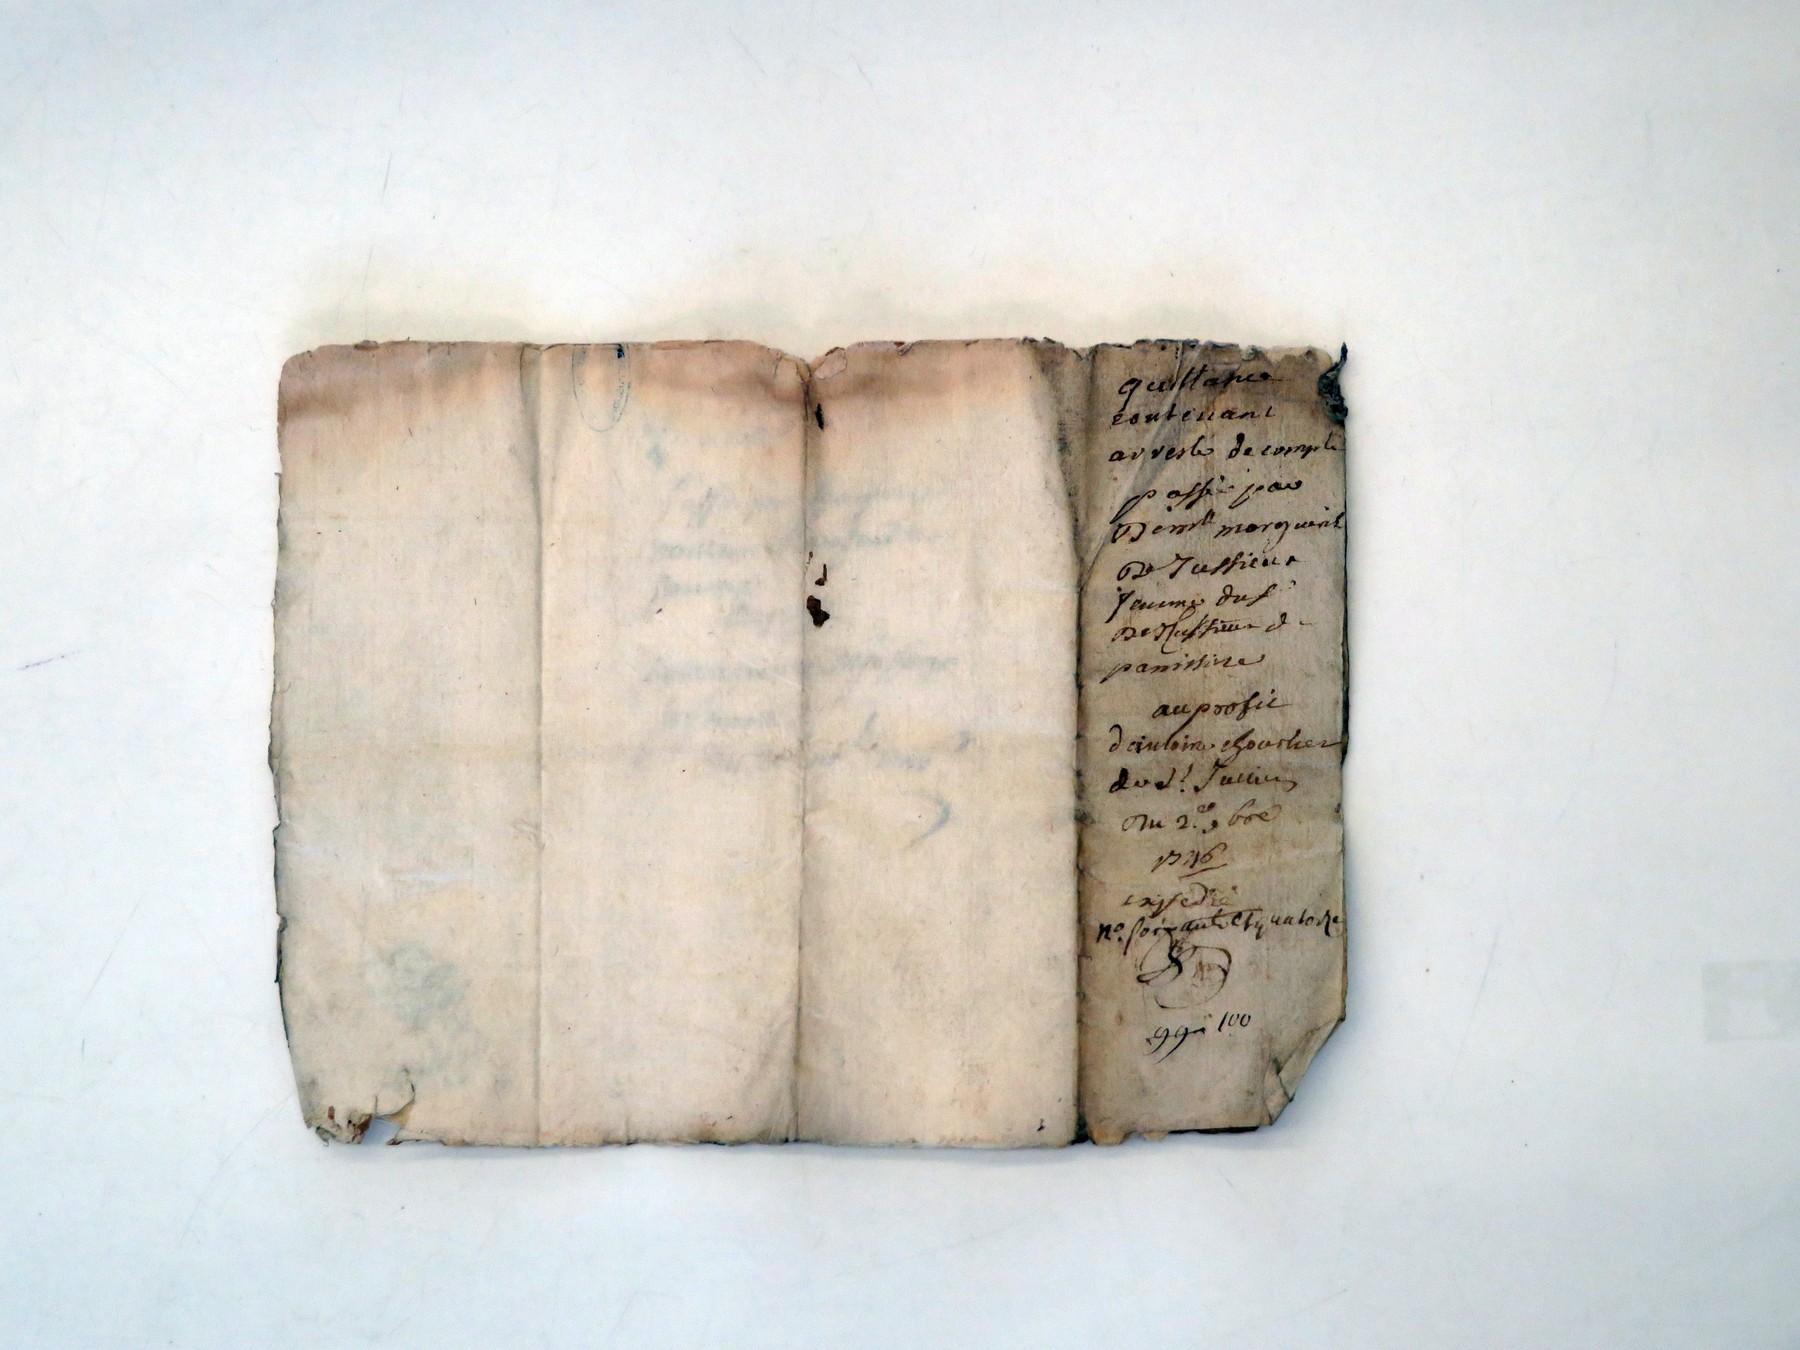 quittance
contenant
arresté de compte
passée par
Demlle marguerit
De Jussieux
femme du sr
De Jussieux d
panissire
au profit
d'antoine
de St. Jullien
Du 2e 9bre
expedié
no. soixante et quatorze
99 100